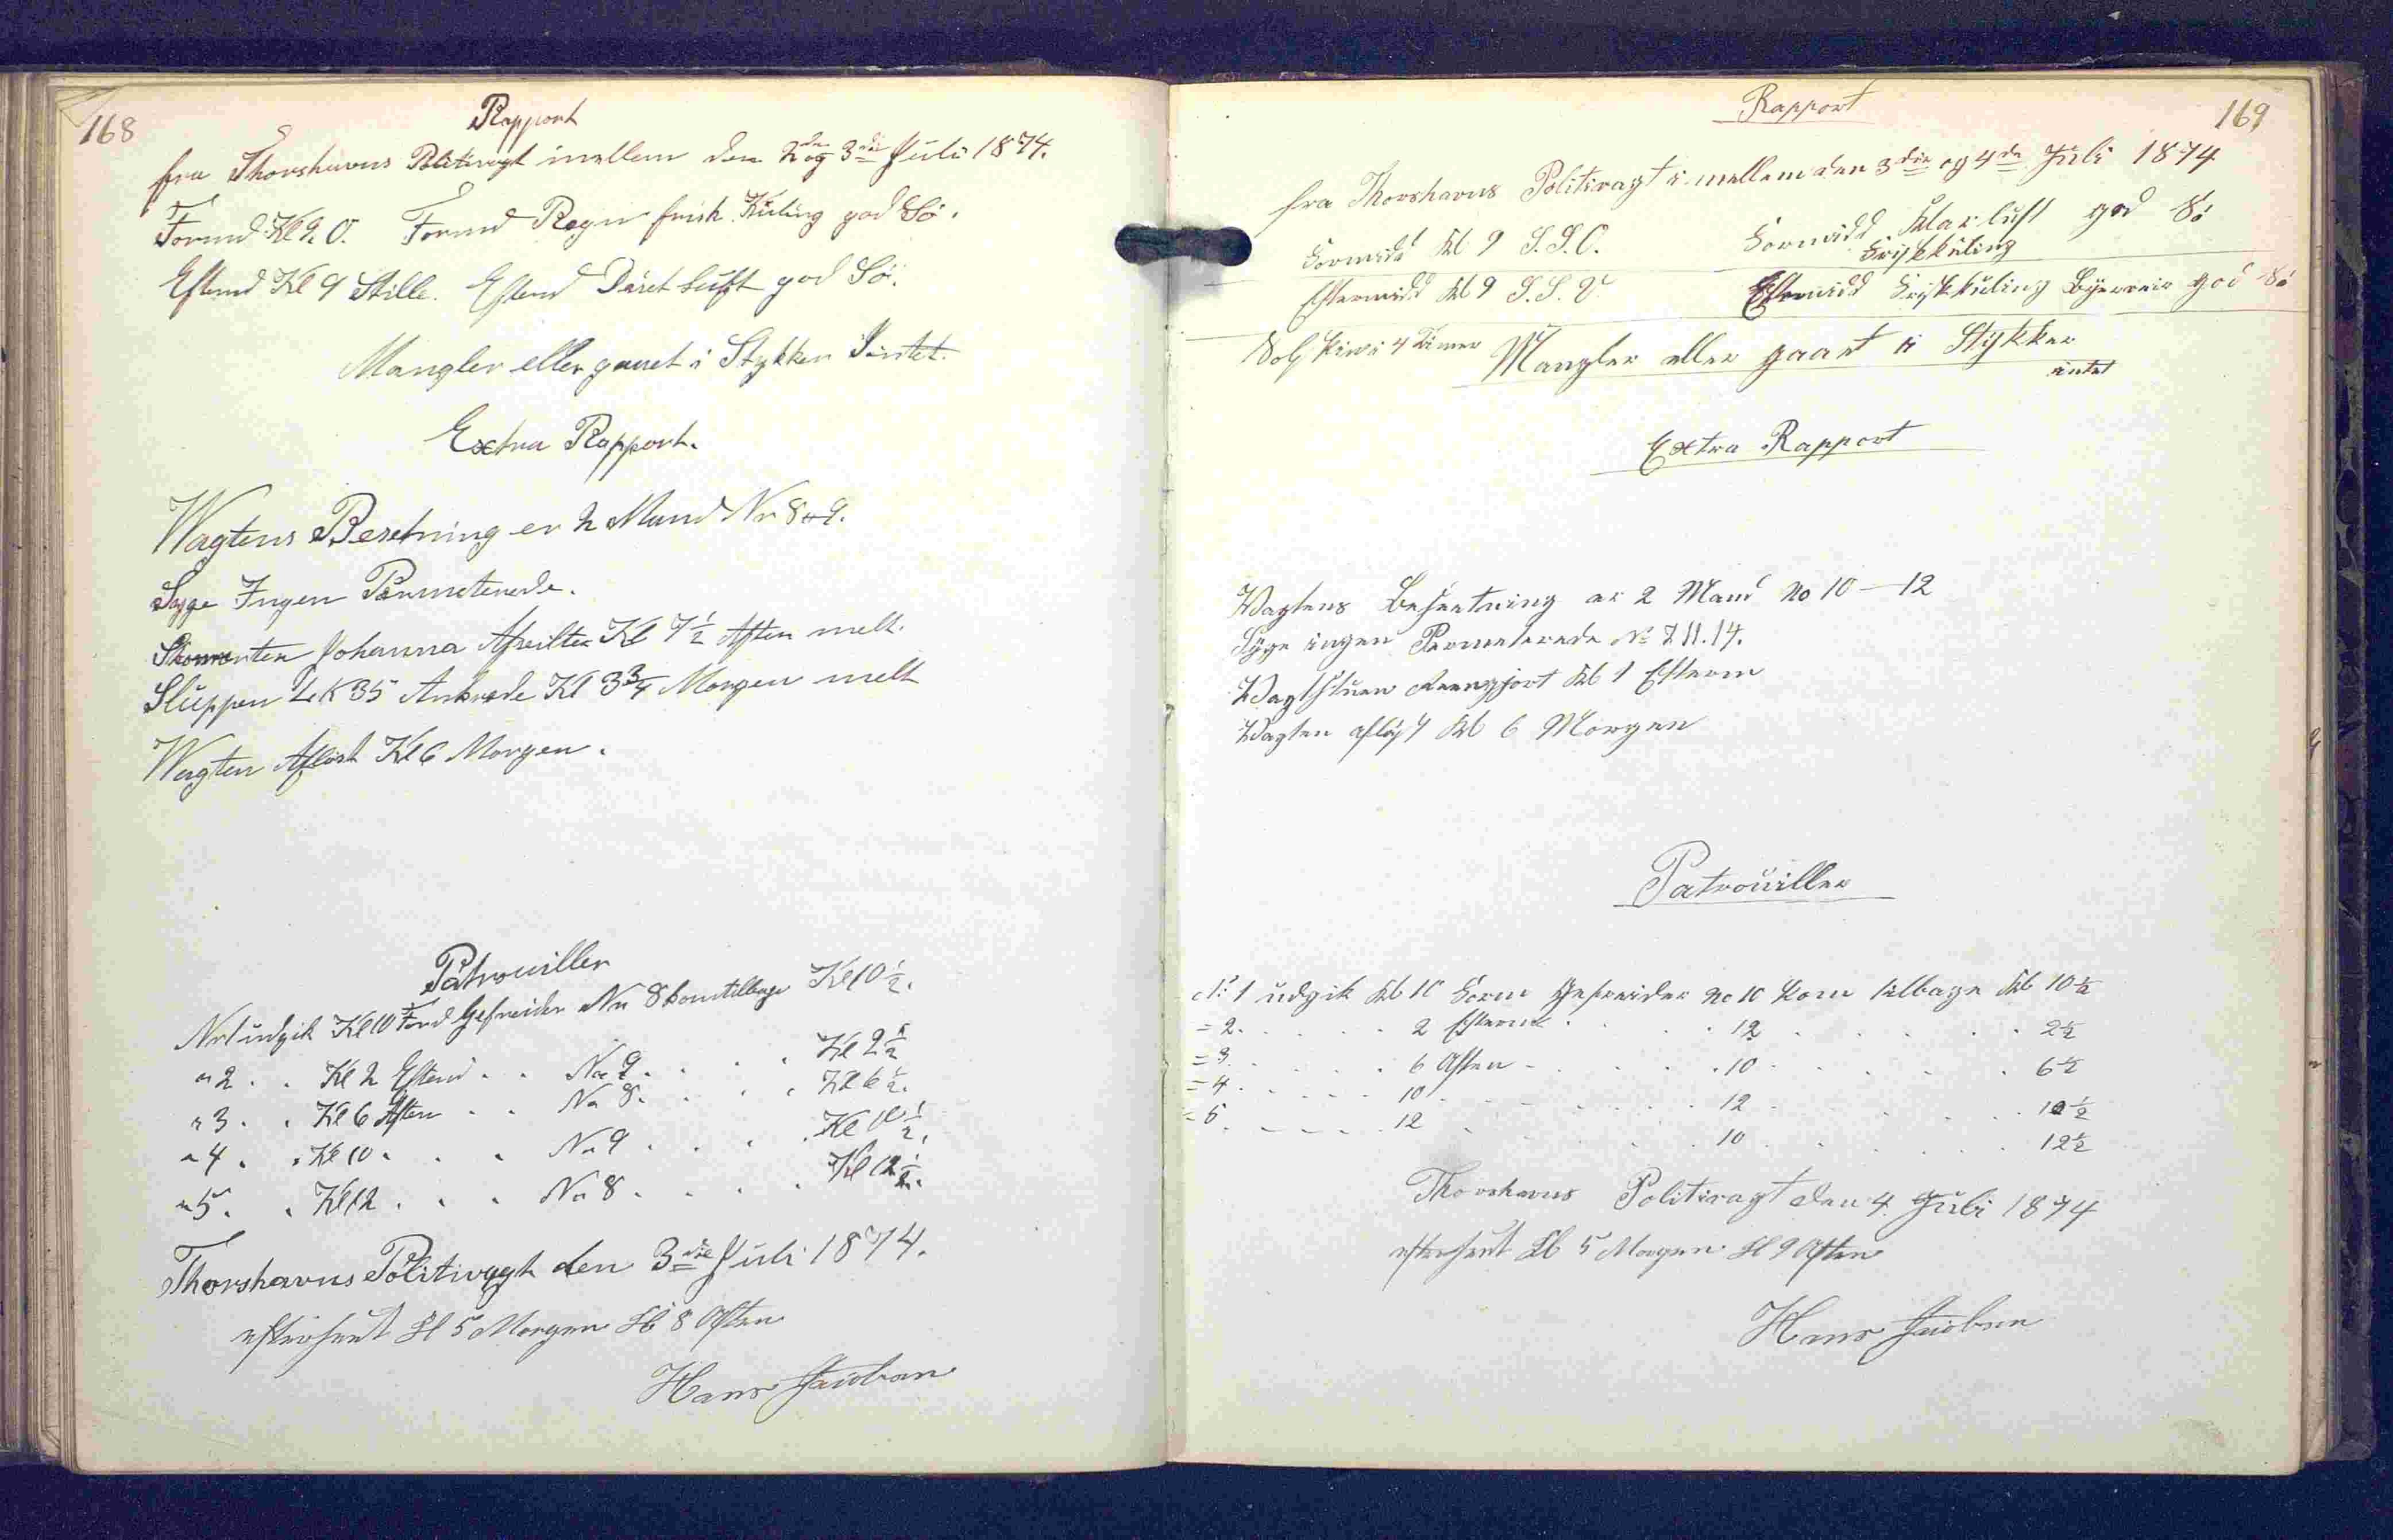 168
Rapport
fra Thorshavns Politivagt imellem den 2den og 3die Juli 1874.
Formd Kl 9. O. Formd Regn frisk Kuling god Sö.
Eftemd Kl 9 Stille. Eftemd Diset Luft god Sö.
Mangler eller gaaet i Stykker Intet.
Extra Rapport.
Wagtens Besetning er 2 Mand Nr 8 & 9.
Syge Ingen Permeterede.
Skonnerten Johanna Afseilte Kl 7½ Aften melt.
Sluppen L K 35 Ankrede Kl 3¾ Morgen melt
Wagten Aflöst Kl 6 Morgen.
Patrouiller
Nr 1 udgik Kl 10 Ford Gefreider Nr 8 kom tilbage Kl 10½.
" 2 . . Kl 2 Eftemd . . Nr 9 . . . Kl 2½
" 3 . . Kl 6 Aften . . Nr 8 . . . Kl 6½.
" 4 . . Kl 10 . . . Nr 9 . . . Kl 10½.
" 5 . . Kl 12 . . . Nr 8 . . . Kl 12½.
Thorshavns Politivagt den 3die Juli 1874.
efterseet Kl 5 Morgen Kl 8 Aften
Hans Jacobsen
169
Rapport
fra Thorshavns Politivagt i mellem den 3die og 4de Juli 1874
Formidd Kl 9 S.S.O. Formidd Klar luft god Sö
Friskkuling
Eftermidd Kl 9 S.S.V. Eftermidd Friskkuling Byeveir god Sö
Solskin i 4 Timer Mangler eller gaaet i Stykker
intet
Extra Rapport
Wagtens Besætning er 2 Mand No 10 – 12
Syge ingen Permeterede No 7. 11. 14.
Wagtstuen Reengjort Kl 1 Efterm
Wagten aflöst Kl 6 Morgen
Patrouiller
No 1 udgik Kl 10 Form Gefreider No 10 kom tilbage Kl 10½
= 2. . . . . 2 Efterm . . . 12 . . . . 2½
= 3 . . . . 6 Aften . . . 10 . . . . 6½
= 4 . . . . 10 . . . . 12 . . . . 10½
= 5 . . . . 12 . . . . 10 . . . . 12½
Thorshavns Politivagt den 4. Juli 1874
efterseet Kl 5 Morgen Kl 9 Aften
Hans Jacobsen